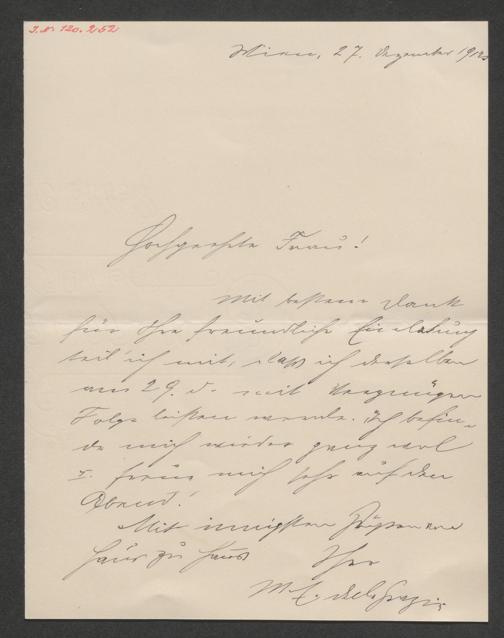 I.N. 120.252
Wien, 27. Dezember 191
Hochgeehrte Frau!
Mit bestem Dank
für Ihre freundliche Einladung
teil' ich mit, daß ich derselben
am 29. d. mit Vergnügen
Folge leisten werde. Ich befin-
de mich wieder ganz wol
u. freue mich sehr auf den
Abend!
Mit innigsten Grüßen von
Haus zu Haus
Ihre
M. E. delle Grazie